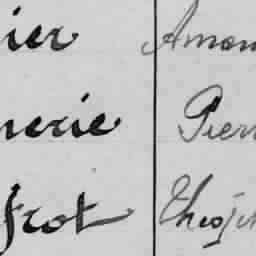 ier Aman
nerie Pierr
frot Théoph